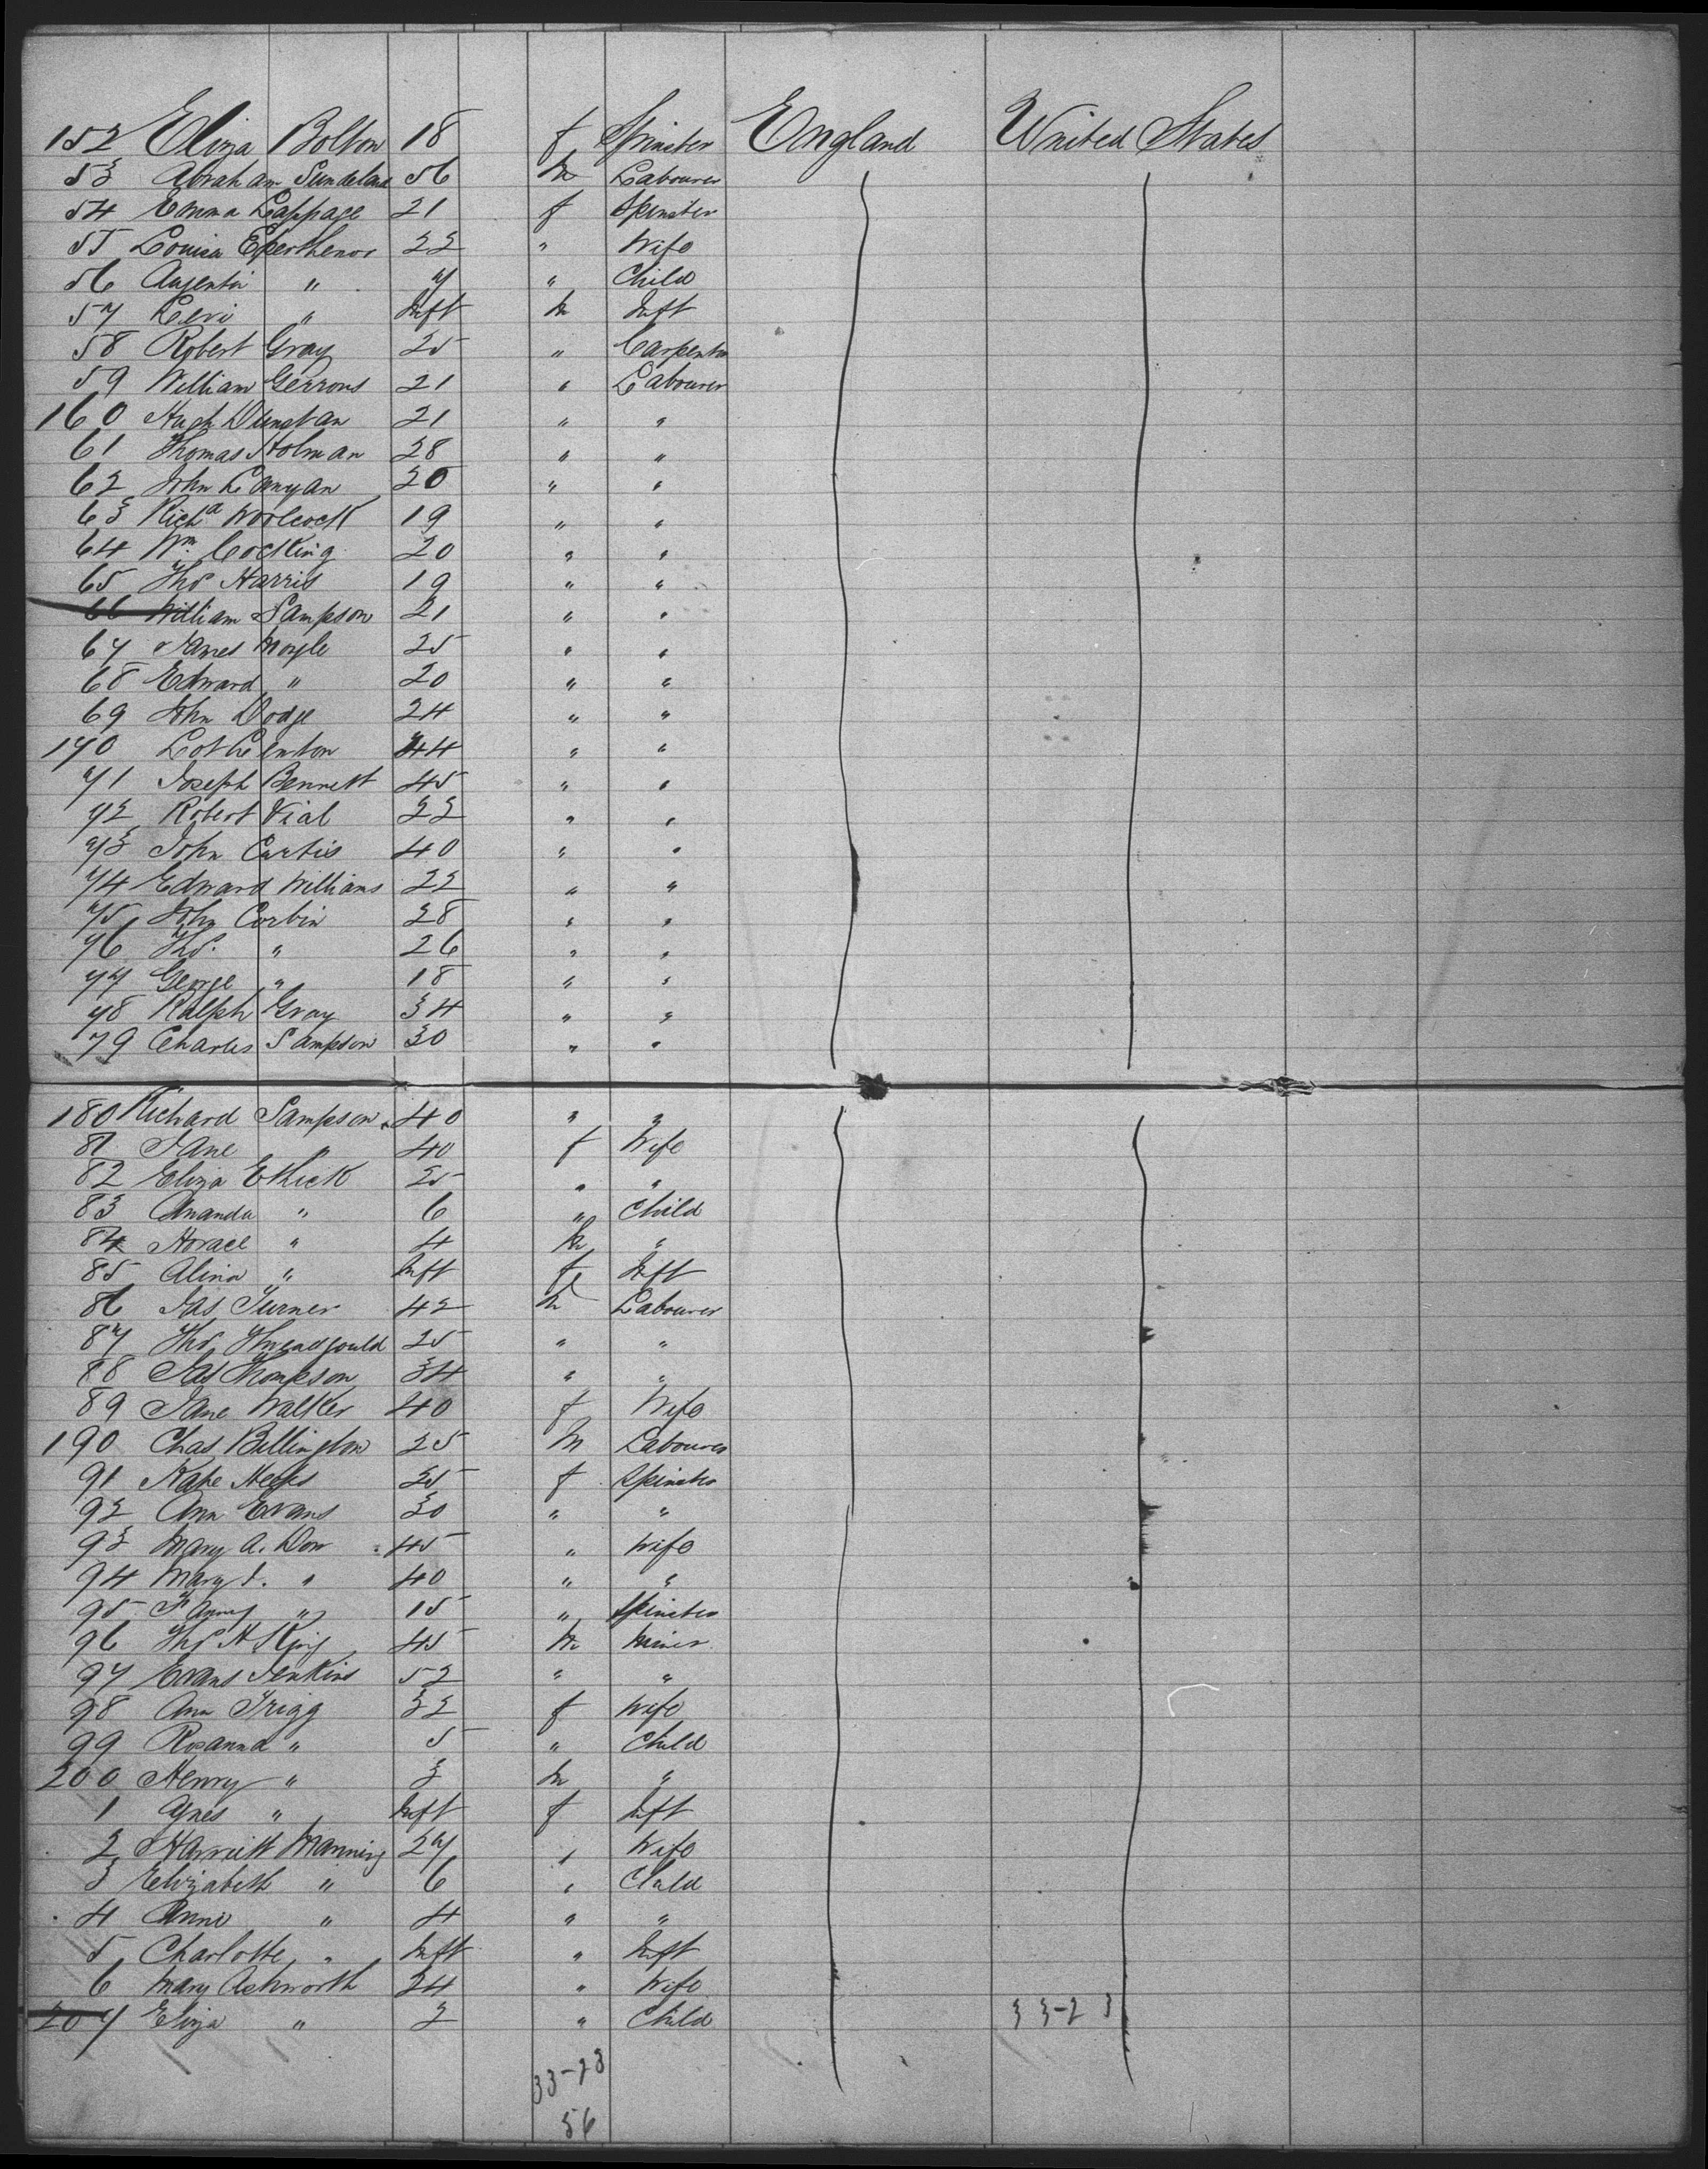 152 Eliza Bolton 18 f Spinster England United States
53 Abraham Sundeland 56 m Labourer
54 Emma Lappage 21 f Spinster
55 Louisa 22 " Wife
56 " 7 " Child
57 Levi " Inft m Inft
58 Robert Gray 25 " Carpenter
59 William Gerrons 21 " Labourer
160 Hugh Dunstan 21 " "
61 Thomas Holman 28 " "
62 John Lanyan 20 " "
63 Richd Woolcock 19 " "
64 Wm. Cocking 20 " "
65 Thos Harris 19 " "
66 William Sampson 21 " "
67 James Moyle 25 " "
68 Edward " 20 " "
69 John Dodge 24 " "
170 Lot Lenton 44 " "
71 Joseph Bennett 45 " "
72 Robert Vial 22 " "
73 John Curtis 40 " "
74 Edward Williams 22 " "
75 John Corbin 28 " "
76 Thos. " 26 " "
77 George " 18 " "
78 Ralph Gray 34 " "
79 Charles Sampson 30 " "
180 Richard Sampson 40 " "
81 Jane " 40 f Wife
82 Eliza Ethick 25 " "
83 Amanda " 6 " Child
84 Horace " 4 m "
85 Alina " Inft f Inft
86 Jas Turner 42 m Labourer
87 Thos Threadgould 25 " "
88 Jas Thompson 34 " "
89 Jane Walker 40 f Wife
190 Chas Billington 25 m Labourer
91 Kate 25 f Spinster
92 Ann Evans 30 " "
93 Mary A. Dow 45 " Wife
94 Mary " 40 " "
95 Fanny " 15 " Spinster
96 Thos H King 45 m Miner
97 Evans Jenkins 52 " "
98 Ann Trigg 32 f Wife
99 Rosanna " 5 " Child
200 Henry " 3 m "
1 Agnes " Inft f Inft
2 Harriett Manning 27 " Wife
3 Elizabeth " 6 " Child
4 Anne " 4 " "
5 Charlotte " Inft " Inft
6 Mary Ashworth 24 " Wife
207 Eliza " 2 " Child 33-23
33-23
56